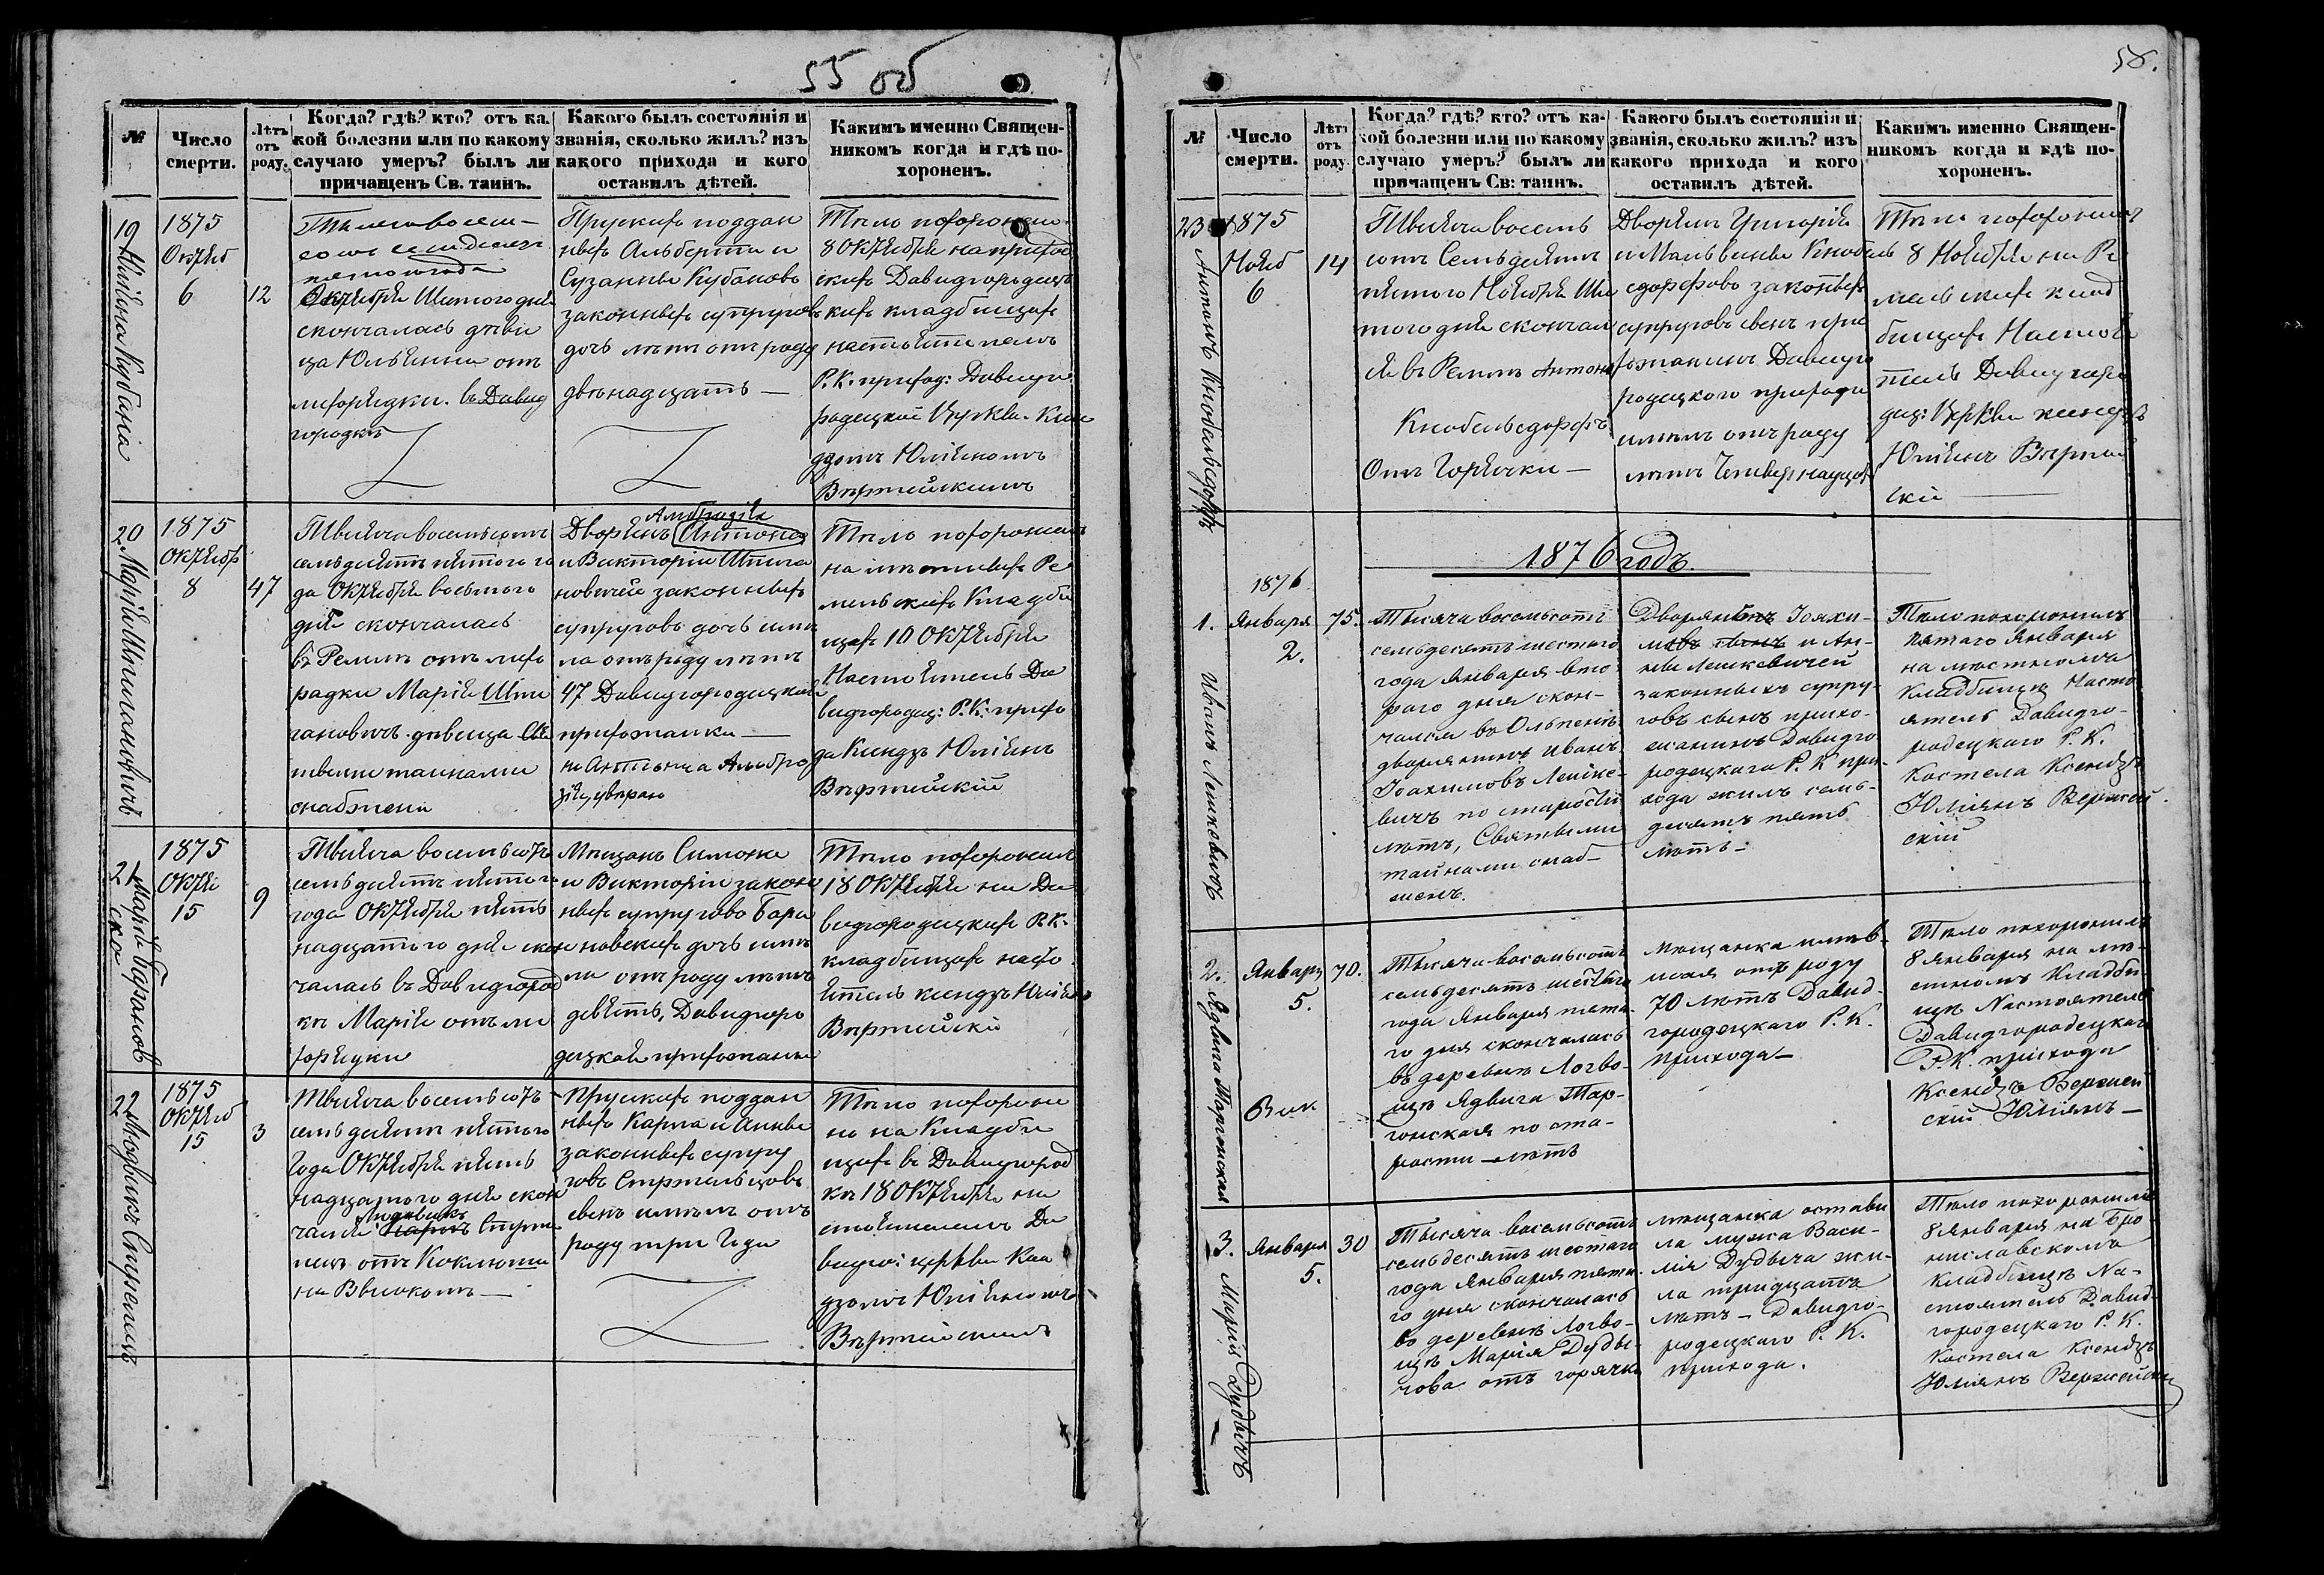 55 об
№
Число
смерти.
Лѣтъ
отъ
роду.
Когда? гдѣ? кто? отъ ка
кой болезни или по какому
случаю умеръ? былъ ли
причащенъ Св. таинъ.
Какого былъ состоянія и
званія, сколько жилъ? изъ
какого прихода и кого
оставилъ дѣтей.
Какимъ именно Священ-
никомъ когда и гдѣ по-
хороненъ.
19
Кубана
1875
Октяб
6
12
Октября Шестого дня
скончалась дѣви
ца Юльянна отъ
лихорядки. въ Давид
городкѣ
Прускихъ поддан
ныхъ Альберта и
Сузанны Кубановъ
законныхъ супруговъ
дочь лѣтъ отъ роду
двѣнадцать —
Тѣло похоронено
8 Октября на приход
скихъ Давидгородец
кихъ кладбищахъ
настоятелемъ
Р. К. приход: Давидго
родецкой Церкви. Ксен
дзомъ Юліяномъ
Вѣржейскимъ
20
Марія Штыгановичъ
1875
Октябр
8
47
Тысяча восемьсотъ
семьдесятъ пятого го
да Октября восьмого
дня скончалась
въ Ремлѣ отъ лихо
радки Марія Шты
гановичъ девица Свя
тыми тайнами
снабжена
Амброзія
Дворянъ Антона
и Викторіи Штыга
новичей законныхъ
супруговъ дочь имѣ
ла отъ роду лѣтъ
47 Давидгородецкой
прихожанка —
не Антонъ а Амбро
зій, увѣряю
Тѣло похоронилъ
на мѣстныхъ Ре
мельскихъ Кладби
щахъ 10 Октября
Настоятель Да
видгородец: Р. К. прихо
да Ксендзъ Юліянъ
Вѣржейскій
21
Марія Баранов
ска
1875
Октя
15
9
Тысяча восемьсотъ
семьдесятъ пятого
года Октября пять
надцатого дня скон
чалась въ Давидгород
кѣ Марія отъ ли
хорядки
Мѣщанъ Симона
и Викторіи закон
ныхъ супруговъ Бара
новскихъ дочь имѣ
ла отъ роду лѣтъ
девять, Давидгоро
децкой прихожанка
Тѣло похоронилъ
18 Октября на Да
видгородецкихъ Р. К.
кладбищахъ насто
ятель ксендзъ Юліянъ
Вѣржейскій
22
Людвикъ Стржельцъ
1875
Октяб
15
3
Тысяча восемьсотъ
семьдесятъ пятого
Года Октября пять
надцатого дня скон
Людвикъ
чался Карлъ
отъ Коклюша
Прускихъ поддан
ныхъ Карла и Анны
законныхъ супру
говъ Стржельцовъ
сынъ имѣлъ отъ
роду три Года
Тѣло похороне
но на Кладби
щахъ въ Давидгород
кѣ 18 Октября на
стоятелемъ Да
видго: церкви Ксен
дзомъ Юліяномъ
Вѣржейскимъ
58.
№
Число
смерти.
Лѣтъ
отъ
роду.
Когда? гдѣ? кто? отъ ка-
кой болезни или по какому
случаю умеръ? былъ ли
причащенъ Св: таинъ.
Какого былъ состоянія и
званія, сколько жилъ? изъ
какого прихода и кого
оставилъ дѣтей.
Какимъ именно Священ-
никомъ когда и гдѣ по-
хороненъ.
23
Антонъ Кнобельсдорфъ
1875
Нояб
6
14
Тысяча восемь
сотъ Семьдесятъ
пятого Ноября Ше
стого дня скончал
ся въ Ремлѣ Антонъ
Кнобельсдорфъ
Отъ Горячки —
Дворянъ Григорія
и Мальвины Кнобель
сдорфовъ законныхъ
супруговъ сынъ при
хожанинъ Давидго
родецкого прихода
имѣлъ отъ роду
лѣтъ Четырнадцать
Тѣло похоронилъ
8 Ноября на Ре
мельскихъ клад
бищахъ Настоя
тель Давидгоро
дец: Церкви ксендзъ
Юліянъ Вержей
скій
1876 годъ.
1876
1.
Иванъ Лешкевичъ
Января
2.
75.
Тысяча восемьсотъ
семьдесятъ шестого
года Января вто
раго дня скон-
чался въ Ольпенѣ
дворянинъ Иванъ
Іоахимовъ Лешке-
вичъ по старости
лѣтъ, Святыми
тайнами снаб-
женъ.
Дворянъ Іоахи-
ма и Ан-
ны Лешкевичей
законныхъ супру-
говъ сынъ прихо-
жанинъ Давидго
родецкаго Р. К при-
хода жилъ семь-
десятъ пять
лѣтъ —
Тѣло похоронилъ
пятаго Января
на мѣстномъ
кладбищѣ Насто
ятель Давидго-
родецкаго Р. К.
Костела Ксендзъ
Юліянъ Вержей
скій
2.
Ядвига Таргонская
Январ
5.
70.
Тысяча восемьсотъ
семьдесятъ шестаго
года Января пята-
го дня скончалась
въ деревнѣ Логво-
щѣ Ядвига Тар-
гонская по ста-
рости — лѣтъ
мѣщанка имѣв-
шая отъ роду
70 лѣтъ Давид-
городецкаго Р. К.
прихода —
Тѣло похоронилъ
8 января на мѣ-
стномъ кладби-
щѣ Настоятель
Давидгородецкаго
Р. К. прихода
Ксендзъ Вержей
скій Юліянъ —
3.
Марія Дудычъ
Января
5.
30
Тысяча восемьсотъ
семьдесятъ шестаго
года Января пята-
го дня скончалась
въ деревнѣ Логво-
щѣ Марія Дуды-
чова отъ горячки
мѣщанка остави
ла мужа Васи-
лія Дудыча жи-
ла тридцать
лѣтъ — Давидго-
родецкаго Р. К.
прихода.
Тѣло похоронилъ
8 января на Бро-
ниславскомъ
кладбищѣ На-
стоятель Давид-
городецкаго Р. К.
Костела Ксендзъ
Юліянъ Вержейскій